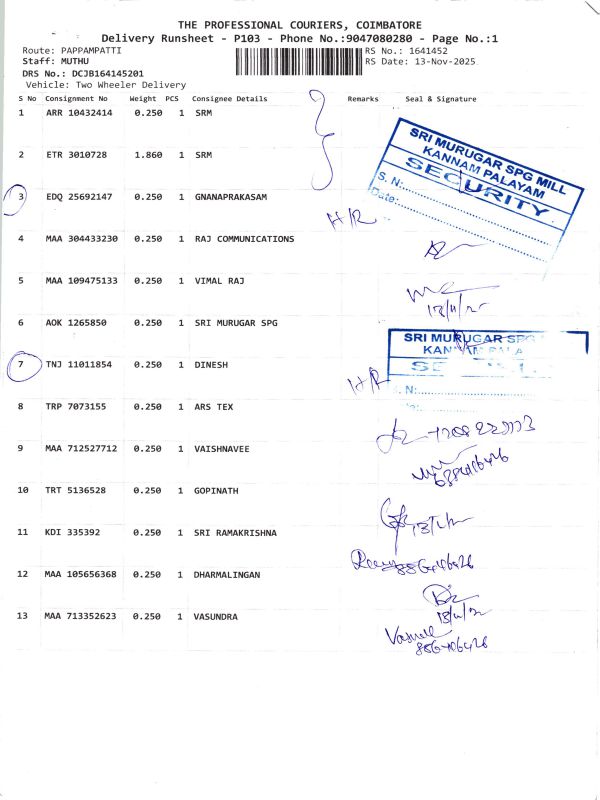 THE PROFESSIONAL COURIERS, COIMBATORE
Delivery Runsheet - P103 - Phone No.:9047080280 - Page No.:1
Route: PAPPAMPATTI RS No.: 1641452
Staff: MUTHU RS Date: 13-Nov-2025
DRS No.: DCJB164145201
Vehicle: Two Wheeler Delivery
S No Consignment No Weight PCS Consignee Details Remarks Seal & Signature
1 ARR 10432414 0.250 1 SRM
2 ETR 3010728 1.860 1 SRM
SRI MURUGAR SPG MILL
KANNAM PALAYAM
SECURITY
S. N:
Date:
3 EDQ 25692147 0.250 1 GNANAPRAKASAM H/R
4 MAA 304433230 0.250 1 RAJ COMMUNICATIONS
5 MAA 109475133 0.250 1 VIMAL RAJ
6 AOK 1265850 0.250 1 SRI MURUGAR SPG
SRI MURUGAR SPG
7 TNJ 11011854 0.250 1 DINESH H/R
8 TRP 7073155 0.250 1 ARS TEX
9 MAA 712527712 0.250 1 VAISHNAVEE
10 TRT 5136528 0.250 1 GOPINATH
11 KDI 335392 0.250 1 SRI RAMAKRISHNA
12 MAA 105656368 0.250 1 DHARMALINGAN
13 MAA 713352623 0.250 1 VASUNDRA